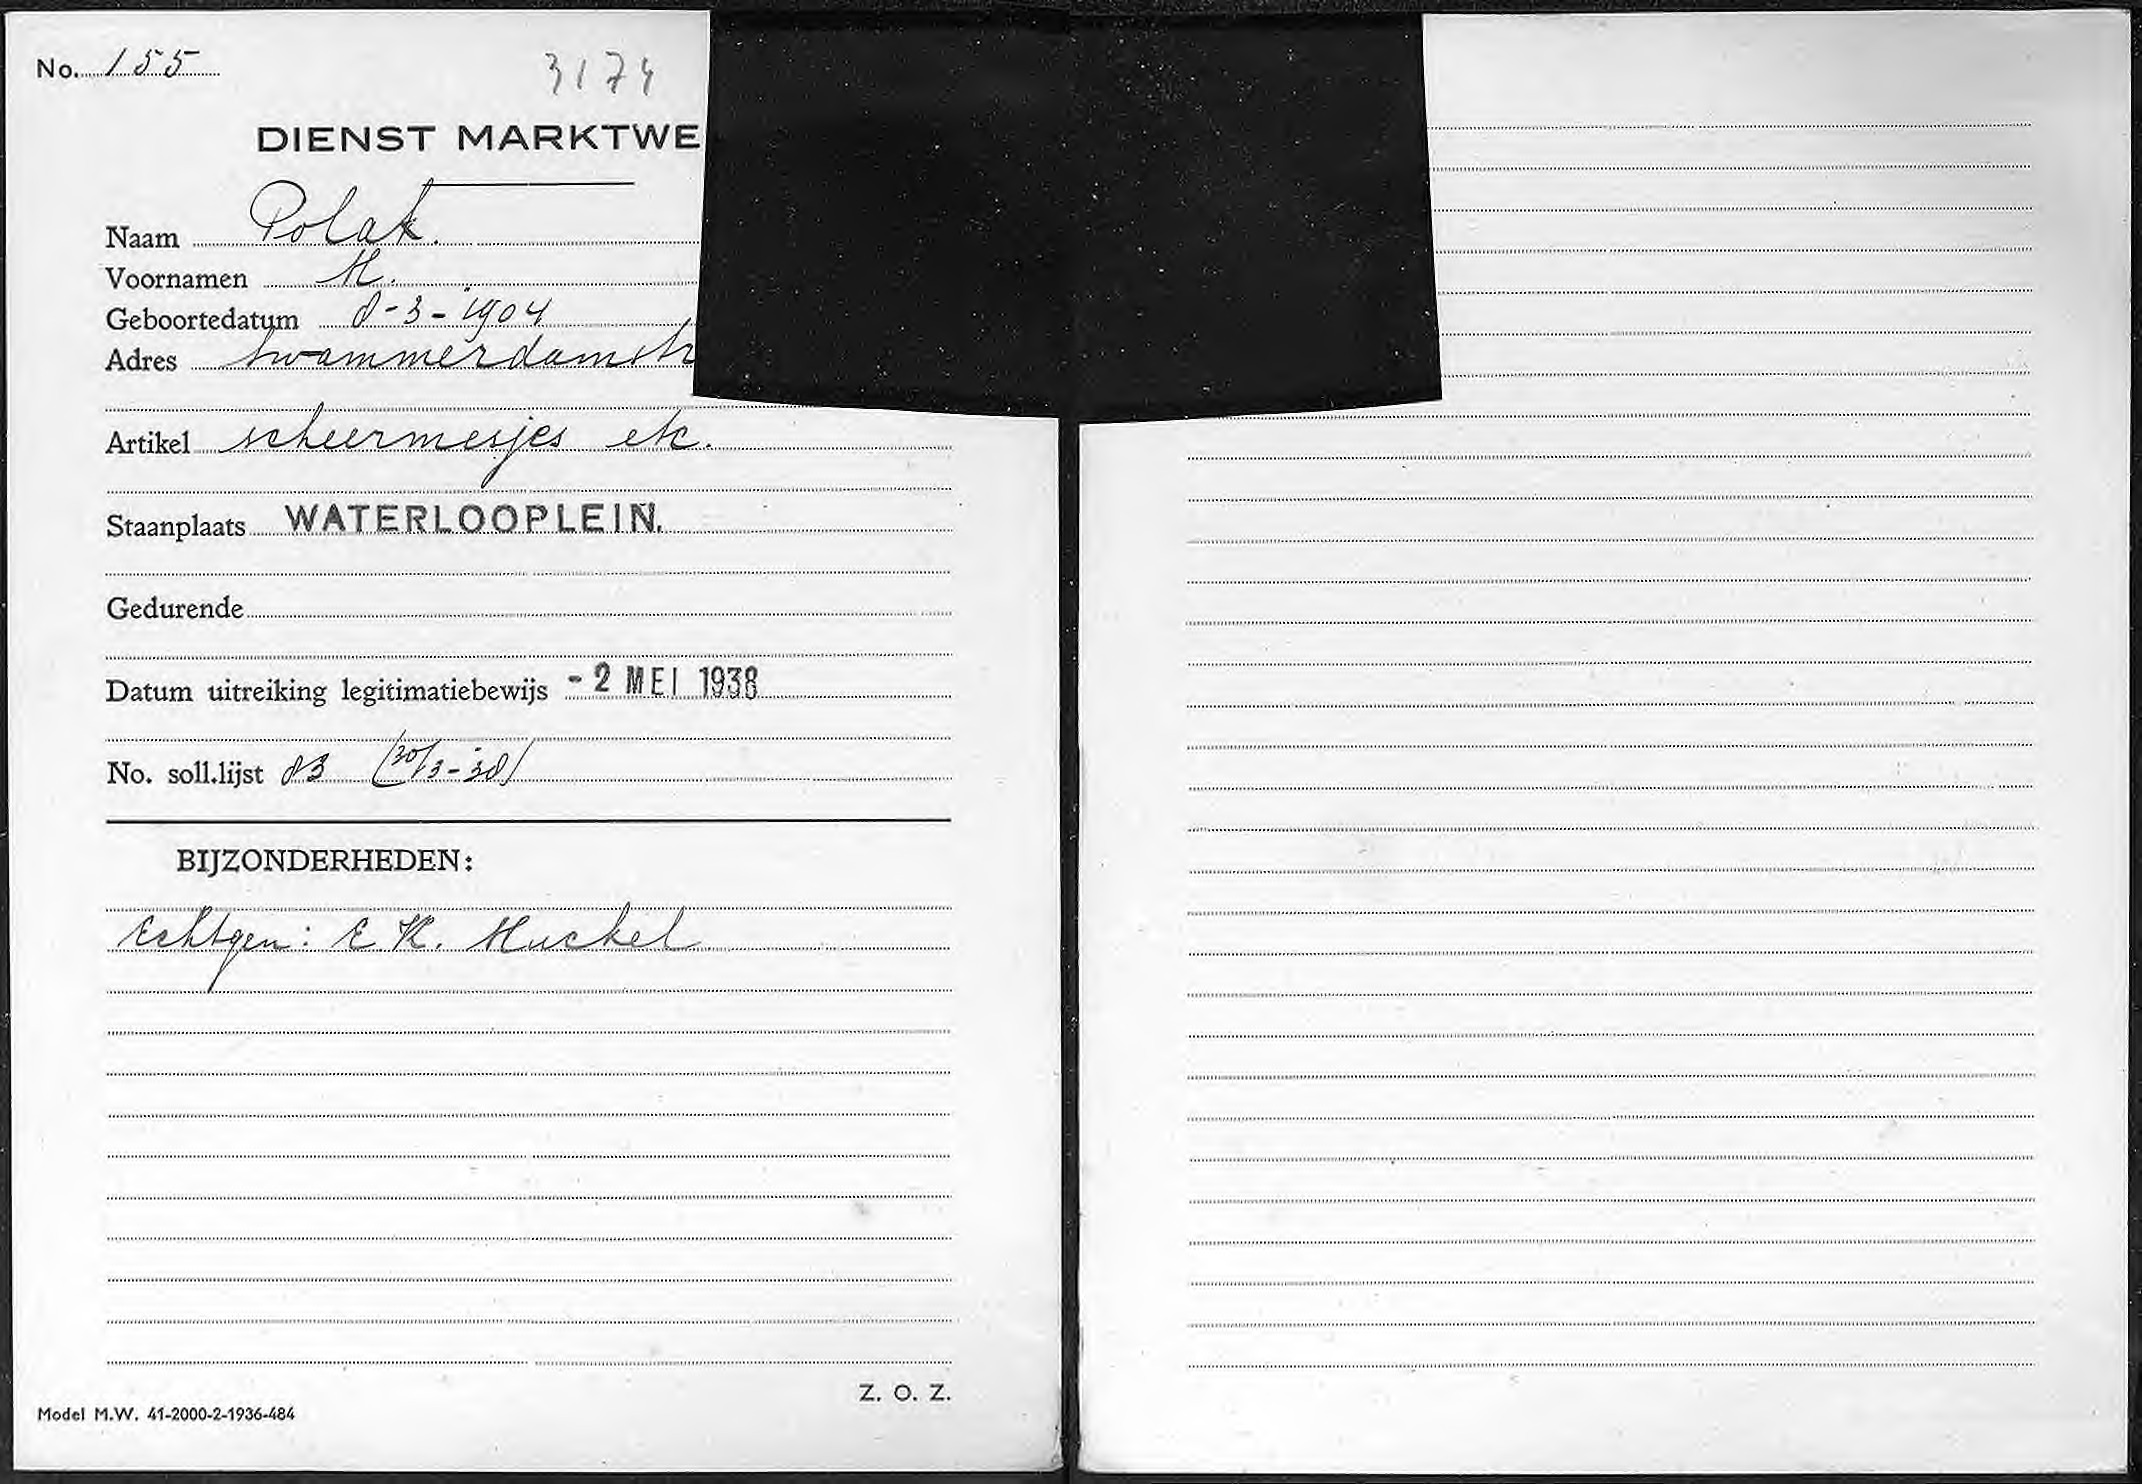 No. 155
3174
DIENST MARKTWE
Naam Polak.
Voornamen M.
Geboortedatum 8-3-1904
Adres Swammerdamstr
Artikel scheermesjes etc.
Staanplaats WATERLOOPLEIN.
Gedurende
Datum uitreiking legitimatiebewijs - 2 MEI 1938
No. soll.lijst 83 (30/3-38)
BIJZONDERHEDEN:
Echtgen: E K. Huckel
Z. O. Z.
Model M.W. 41-2000-2-1936-484